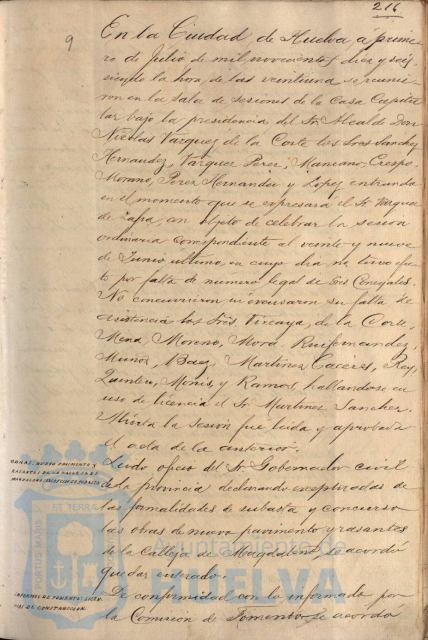 216
9
En la Ciudad de Huelva a prime-
ro de Julio de mil novecientos diez y seis
siendo la hora de las veintiuna se reunie-
ron en la Sala de sesiones de la Casa Capitu-
lar bajo la presidencia del Sr. Alcalde Don
Nicolas Vazquez de la Corte los Sres Sanchez
Hernandez, Vazquez Perez, Manzano, Crespo,
Morano, Perez Hernandez y Lopez entrando
en el momento que se expresará el Sr. Vazquez
de Zafra, con objeto de celebrar la sesion
ordinaria correspondiente al veinte y nueve
de Junio último en cuyo dia no tuvo efec-
to por falta de número legal de Sres Concejales.
No concurrieron ni excusaron su falta de
asistencia los Sres. Vizcaya, de la Corte,
Mena, Moreno, Mora, Ruifernandez,
Muñoz, Baez, Martinez Caceres, Rey,
Quintero, y Ramos, hallandose en
uso de licencia el Sr. Martinez Sanchez.
Abierta la sesión fué leida y aprobada
el acta de la anterior.
Leido oficio del Sr. Gobernador civil
de la provincia declarando exceptuadas de
las formalidades de subasta y concurso
las obras de nuevo pavimento y rasantes
de la Calleja de Magdalena, se acordó
quedar enterado.
De conformidad con lo informado por
la Comision de Fomento se acordó
OBRAS: NUEVO PAVIMENTO Y
RASANTES EN LA CALLEJA DE
MAGDALENA
INFORMES DE FOMENTO:
DE CONSTRUCCION.
PORTUS MARIS ET TERRAE
Ayuntamiento de
HUELVA